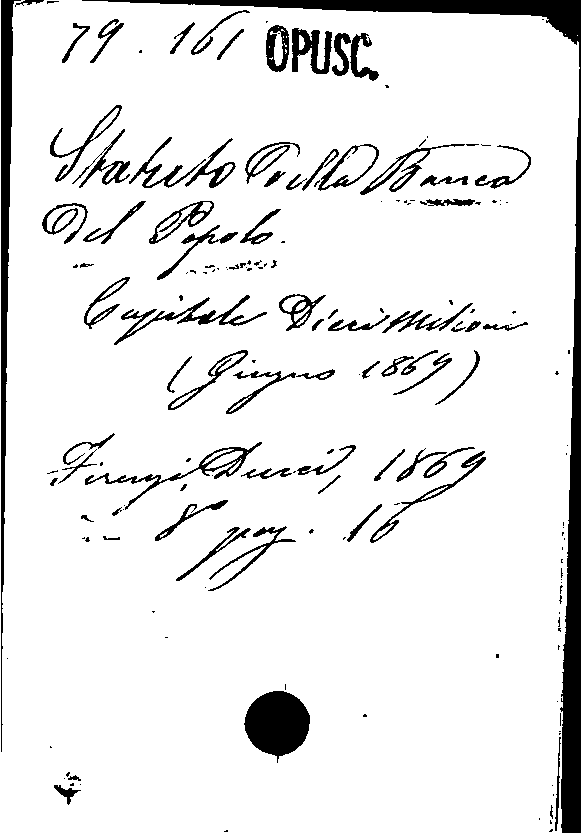 79.161 OPUSC.
Statuto della Banca
del Popolo.
Capitale Dieci Milioni
(Giugno 1869)
Firenze, Ducci, 1869
in 8° pag. 16